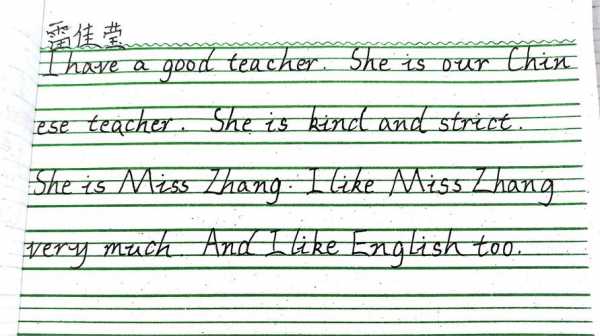 雷佳莹
I have a good teacher. She is our Chin
ese teacher. She is kind and strict.
She is Miss Zhang. I like Miss Zhang
very much. And I like English too.